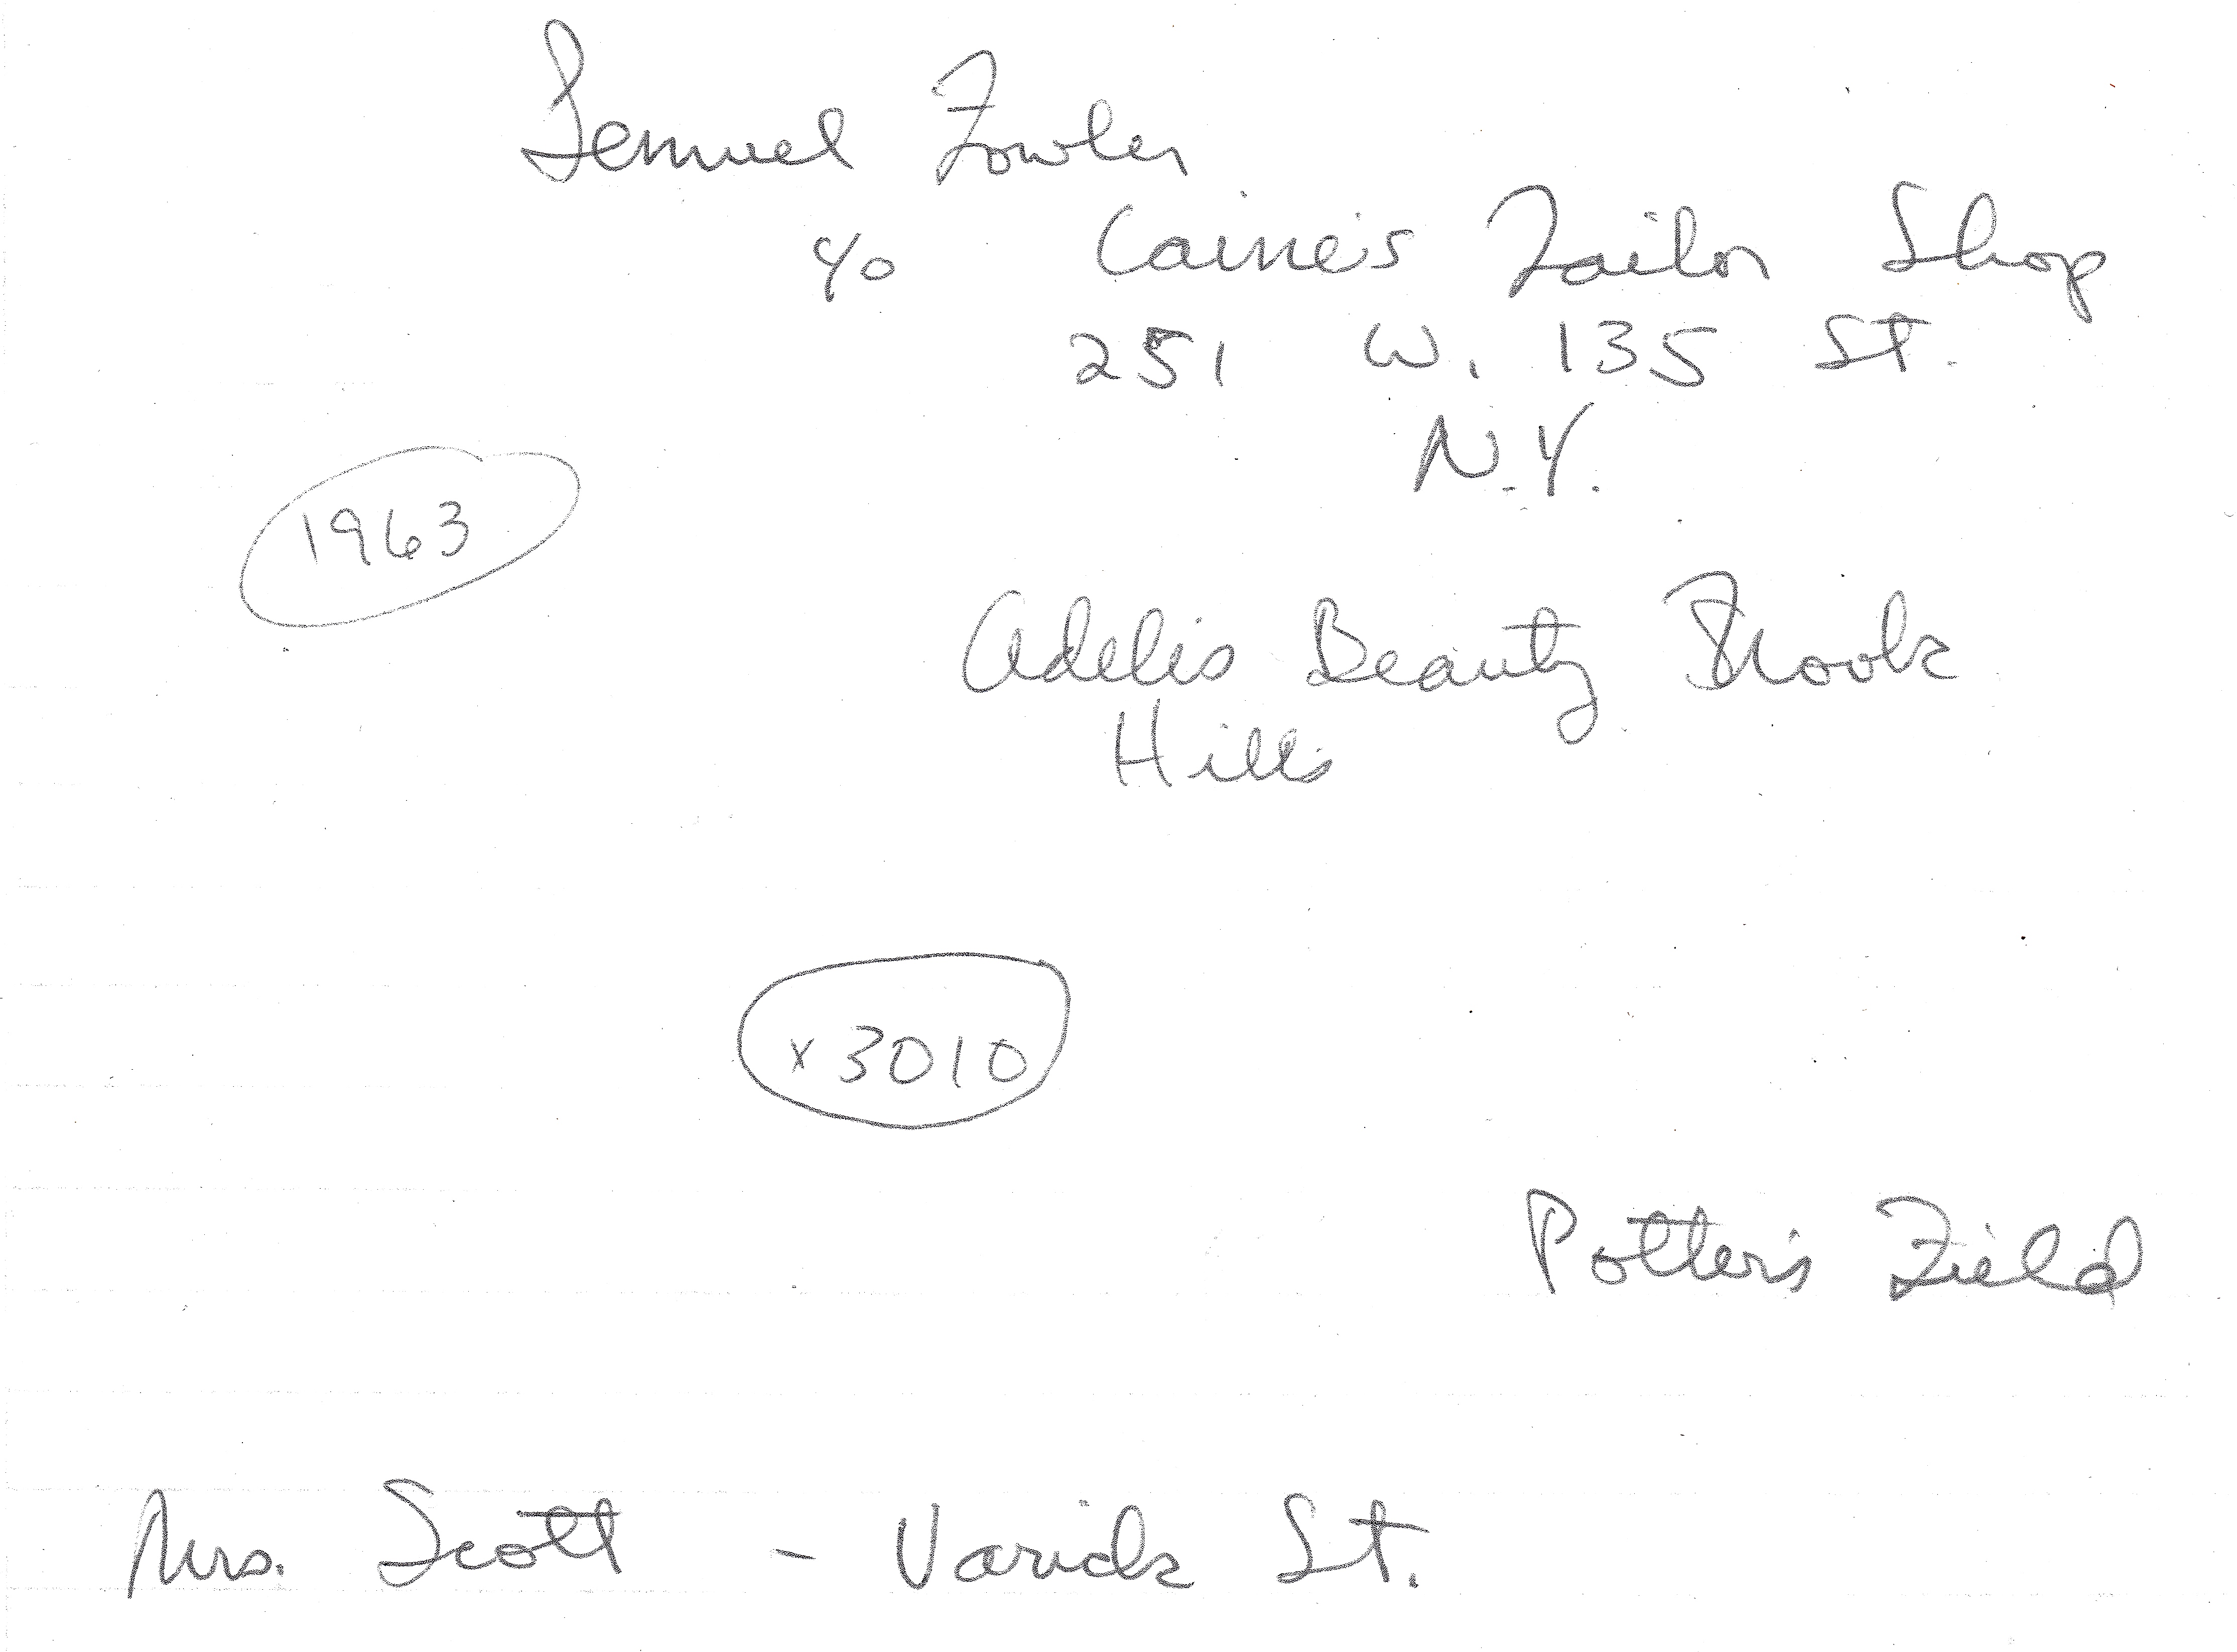 Lemuel Fowler
c/o Caine's Tailor Shop
251 W. 135 St.
N.Y.
1963
Adelis Beauty Nook
Hills
x 3010
Potter's Field
Mrs. Scott - Varick St.